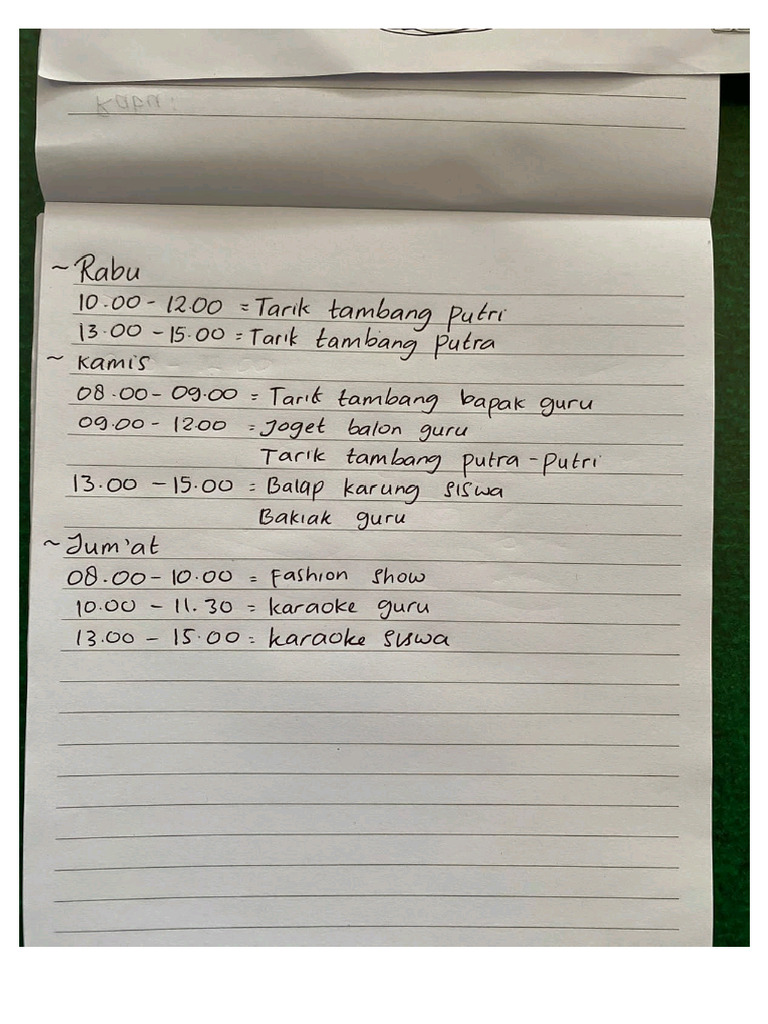 ~ Rabu
10.00 - 12.00 = Tarik tambang putri
13.00 - 15.00 = Tarik tambang putra
~ Kamis
08.00 - 09.00 = Tarik tambang bapak guru
09.00 - 12.00 = Joget balon guru
Tarik tambang putra - putri
13.00 - 15.00 = Balap karung siswa
Bakiak guru
~ Jum'at
08.00 - 10.00 = Fashion show
10.00 - 11.30 = karaoke guru
13.00 - 15.00 = karaoke siswa